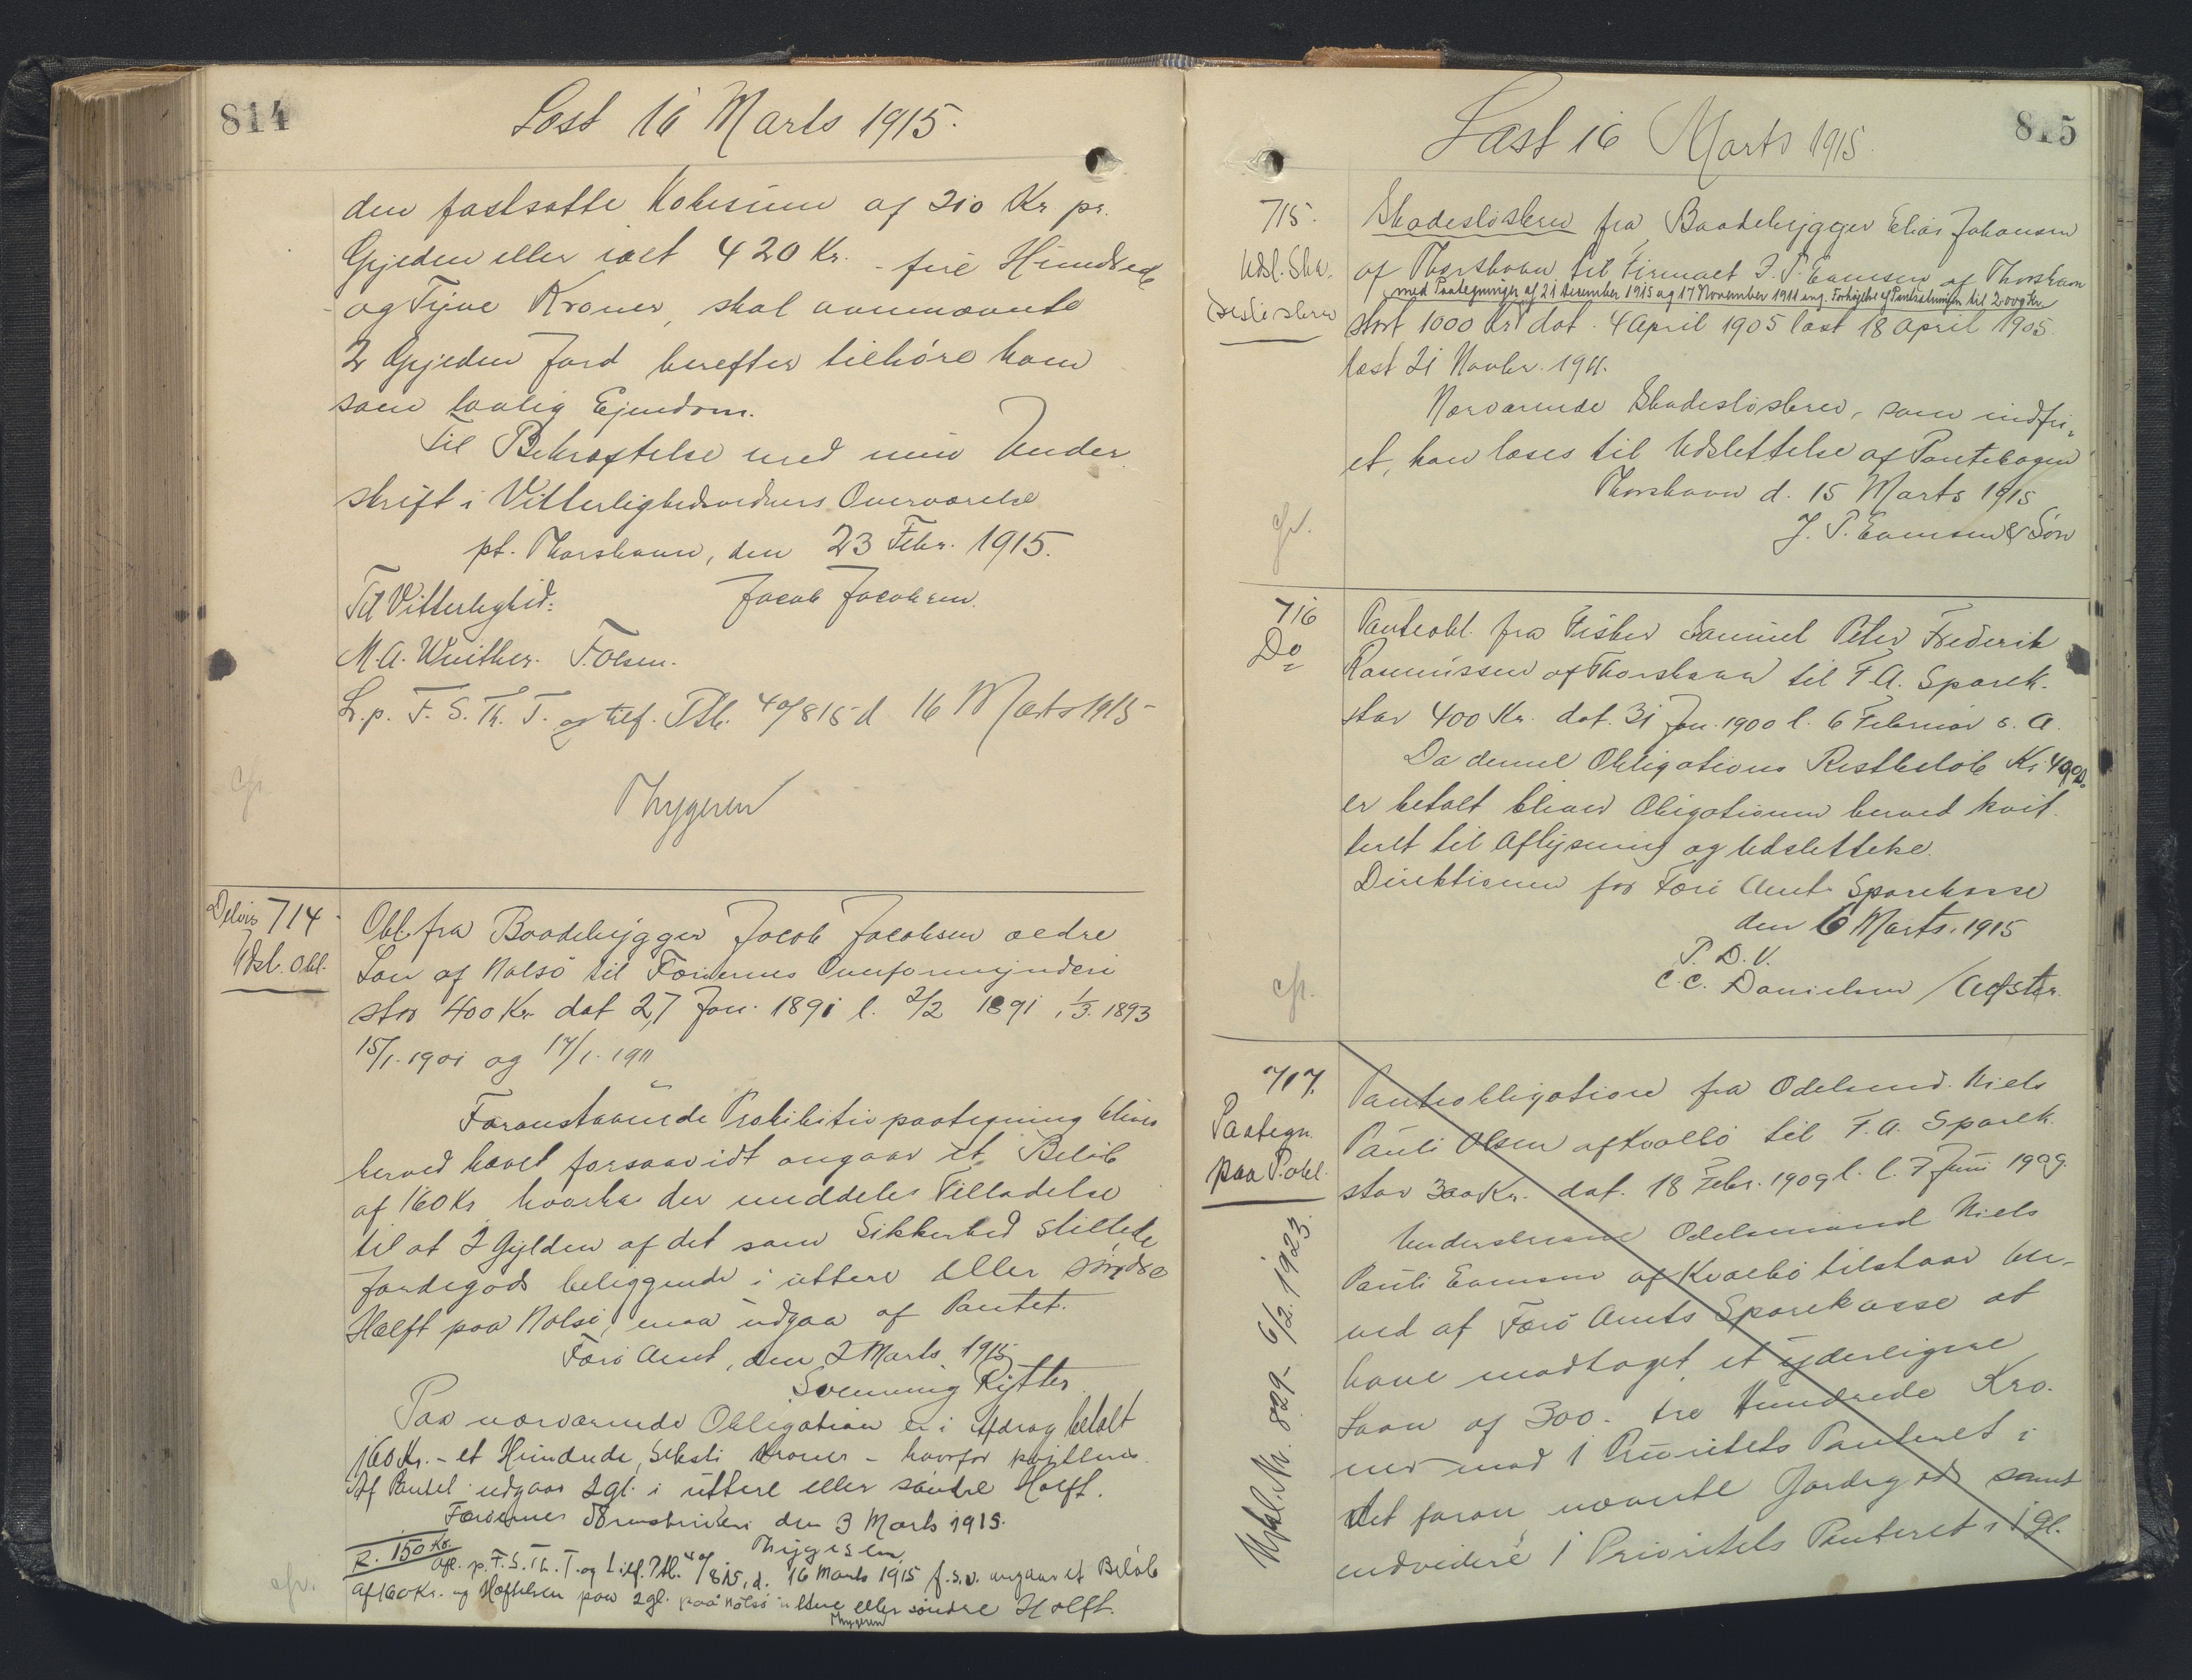 814
Læst 16 Marts 1915.
den fastsatte Købesum af 210 Kr. pr.
Gylden eller ialt 420 Kr. - fire Hundrede
og Tyve Kroner, skal ovennævnte
2 Gylden Jord herefter tilhøre ham
som lovlig Ejendom.
Til Bekræftelse med min Under
skrift i Vitterlighedsvidners Overværelse
pt. Thorshavn, den 23 Febr. 1915.
Til Vitterlighed: Jacob Jacobsen.
M.A. Winther. F. Olsen.
L. p. F. S. Th. T. og tilf. Ptb. 40/815 d 16 Marts 1915
cfr.
Thygesen
Delvis 714
Udsl. Obl.
Obl. fra Baadebygger Jacob Jacobsen ældre
Søn af Nolsö til Færøernes Overformynderi
stor 400 Kr. dat 27 Jan. 1891 l. 2/2 1891, 1/3. 1893
15/1. 1901 og 17/1. 1911
Foranstaaende Prohibitivpaategning bliver
herved hævet forsaavidt angaar et Beløb
af 160 Kr hvorhos der meddeles Tilladelse
til at 2 Gylden af det som Sikkerhed stillede
Jordegods beliggende i üttere eller søndre
Hælft paa Nolsø, maa udgaa af Pantet.
Færø Amt, den 2 Marts 1915
Svenning Rytter
Paa nærværende Obligation er i Afdrag betalt
160 Kr. - et Hundrede, seksti Kroner - hvorfor kvitteres.
Af Pantet udgaar 2 gl. i üttere eller søndre Hælft.
Færøernes Sorenskriveri den 3 Marts 1915.
Thygesen
R. 150 Kr.
Afl. p. F. S. Th. T. og tilf. Ptb. 40/815, d. 16 Marts 1915 f.s.v. angaar et Beløb
af 160 Kr. og Hæftelsen paa 2 gl. paa Nolsö üttere eller søndre Hælft.
Thygesen
cfr.
815
Læst 16 Marts 1915.
715.
Udsl. Ska-
desløsbrev
Skadesløsbrev fra Baadebygger Elias Johansen
af Thorshavn til Firmaet J. P. Evensen af Thorshavn
med Paategninger af 21 December 1915 og 17 November 1911 ang. Forhøjelse af Pantesummen til 2000 Kr.
stort 1000 Kr. dat. 4 April 1905 læst 18 April 1905.
læst 21 Novbr. 1911.
Nærværende Skadesløsbrev, som indfri-
et, kan læses til Udslettelse af Pantebogen
Thorshavn d. 15 Marts 1915
J. P. Evensen & Søn
cfr.
716
Do
Panteobl. fra Fisker Samuel Peter Frederik
Rasmussen af Thorshavn til F. A. Sparek.
stor 400 Kr. dat. 31 Jan. 1900 l. 6 Februar s. A.
Da denne Obligations Restbeløb Kr
er betalt bliver Obligationen herved kvit-
teret til Aflysning og Udslettelse.
Direktionen for Færø Amts Sparekasse
den 6 Marts 1915
P. D. V.
C. C. Danielsen
cfr.
717.
Paategn.
paa P.obl.
Panteobligation fra Odelsmd. Niels
Pauli Olsen af Kvalbø til F. A. Sparek.
stor 300 Kr. dat. 18 Febr. 1909 l. 7 Juni 1909.
Underskrevne Odelsmand Niels
Pauli Evensen af Kvalbø tilstaar her-
ved af Færø Amts Sparekasse at
have modtaget et yderligere
Laan af 300 - tre Hundrede Kro-
ner mod 1 Prioritets Panteret i
det foran nævnte Jordegods samt
endvidere 1 Prioritets Panteret i 1 gl.
Nr. 829 - 6/2. 1923.